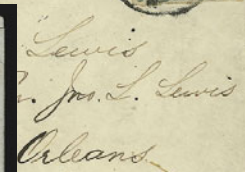 " Lewis
. Jno. L. Lewis
Orleans